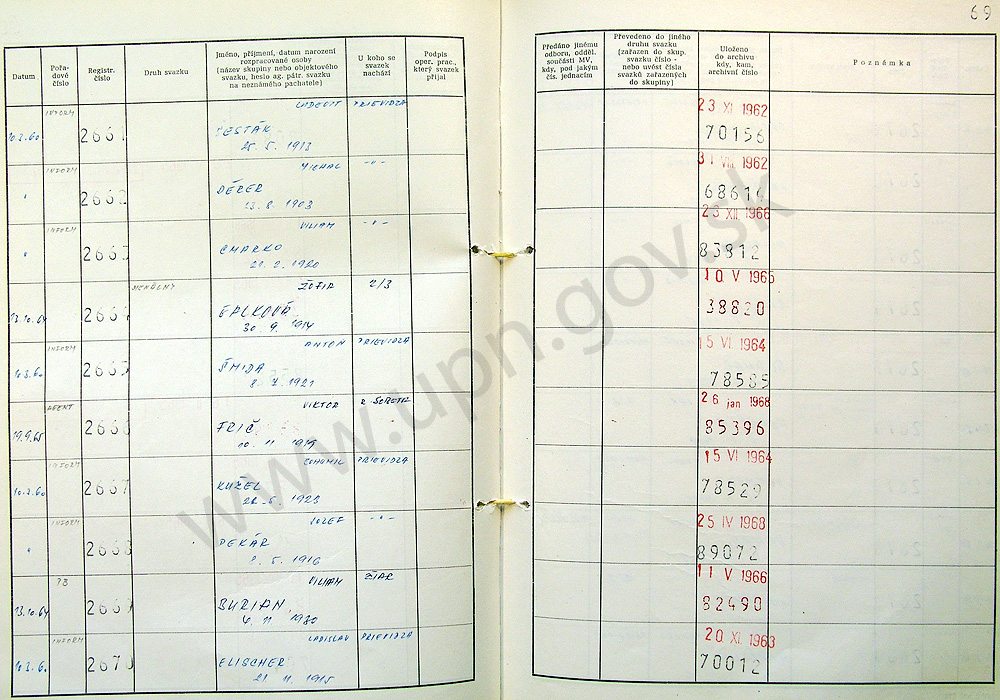 69
Datum
Pořa-
dové
číslo
Registr.
číslo
Druh svazku
Jméno, příjmení, datum narození
rozpracované osoby
(název skupiny nebo objektového
svazku, heslo ag. pátr. svazku
na neznámého pachatele)
U koho se
svazek
nachází
Podpis
oper. prac.,
který svazek
přijal
Předáno jinému
odboru, odděl.
součásti MV,
kdy, pod jakým
čís. jednacím
Převedeno do jiného
druhu svazku
(zařazen do skup.
svazku číslo -
nebo uvést čísla
svazků zařazených
do skupiny)
Uloženo
do archivu
kdy, kam,
archivní číslo
Poznámka
INFORM PRIEVIDZA 23 XI 1962
10.2.60 2661 70156
25. 5. 1913
INFORM MICHAL -"- 31 VIII 1962
" 2662 DÉRER
13. 8. 1903
INFORM VILIAM -"- 23 XII 1966
" 2663 83812
1920
ŽOFIA 2/3 10 V 1965
13.10.64 2664 38820
30. 9. 1914
INFORM ANTON PRIEVIDZA 15 VI 1964
2665 ŠMIDA 78585
1921
AGENT VIKTOR 26 jan 1968
19.9.65 2666 FRIČ 85396
11
INFORM BOHUMIL PRIEVIDZA 15 VI 1964
10.2.60 2667 KUŽEL 78529
1923
INFORM JOZEF -"- 25 IV 1968
" 2668 PEKÁR 89072
8. 5. 1916
VILIAM ŽIAR 11 V 1966
13.10.64 2669 BURIAN 82490
6. 11 1930
INFORM LADISLAV PRIEVIDZA 20 XI 1963
2670 ELISCHER 70012
21 11. 1915
www.upn.gov.sk